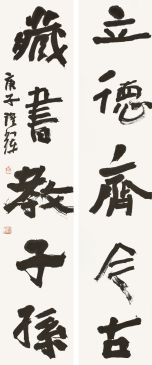 立德齊今古
藏書教子孫
庚子